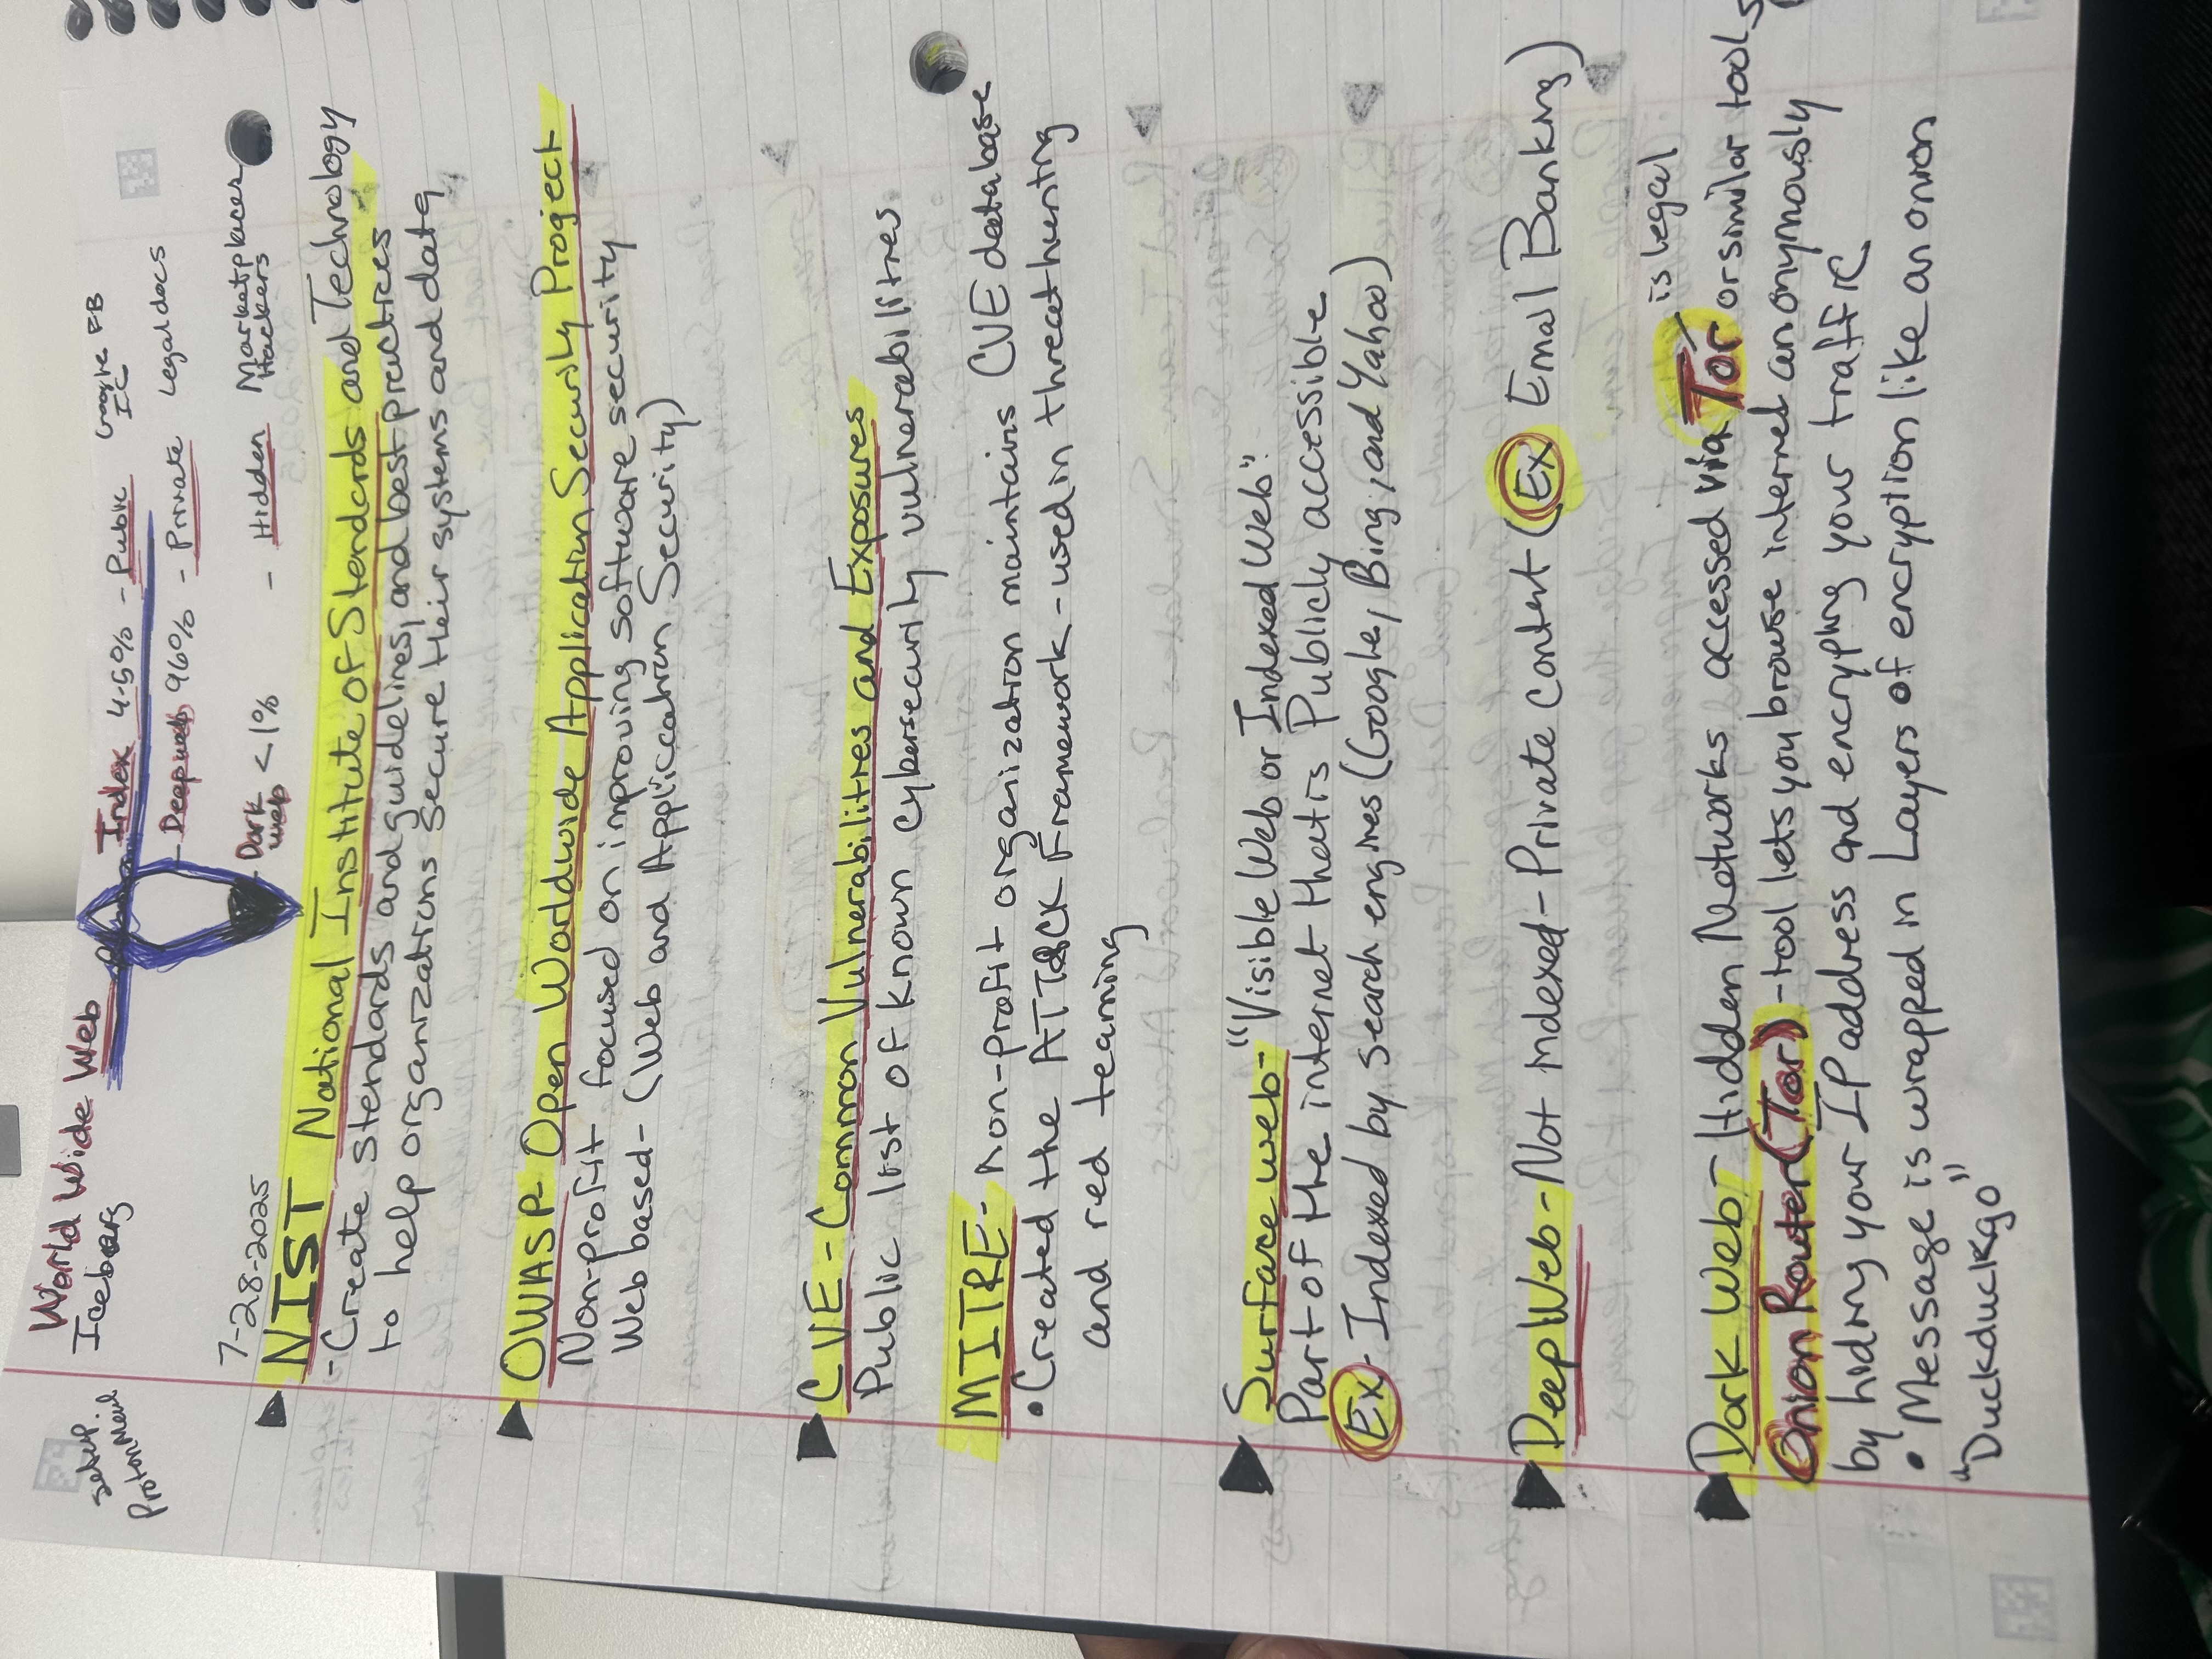 setup
ProtonMail
World Wide Web
Iceberg
Index 4-5% - Public Google FB
IG
Deep web 96% - Private Legal docs
Dark web <1% - Hidden Marketplaces Hackers
7-28-2025
NIST National Institute of Standards and Technology
- Create standards and guidelines, and best practices
to help organizations secure their systems and data
OWASP- Open Worldwide Application Security Project
Non-profit focused on improving software security
Web based- (Web and Appliccation Security)
CVE - Common Vulnerabilities and Exposures
Public list of known cybersecurity vulnerabilities
MITRE- Non-profit organization maintains CVE database
• Created the ATT&CK Framework - used in threat hunting
and red teaming
Surface web- "Visible Web or Indexed Web".
Part of the internet that is Publicly accessible
Ex - Indexed by search engines (Google, Bing, and Yahoo)
Deep Web - Not indexed - Private content (Ex Email Banking)
is legal
Dark Web - Hidden Networks accessed via Tor or similar tools
Onion Router (Tor) - tool lets you browse internet anonymously
by hiding your IP address and encrypting your traffic
• Message is wrapped in Layers of encryption like an onion
"Duckduckgo"